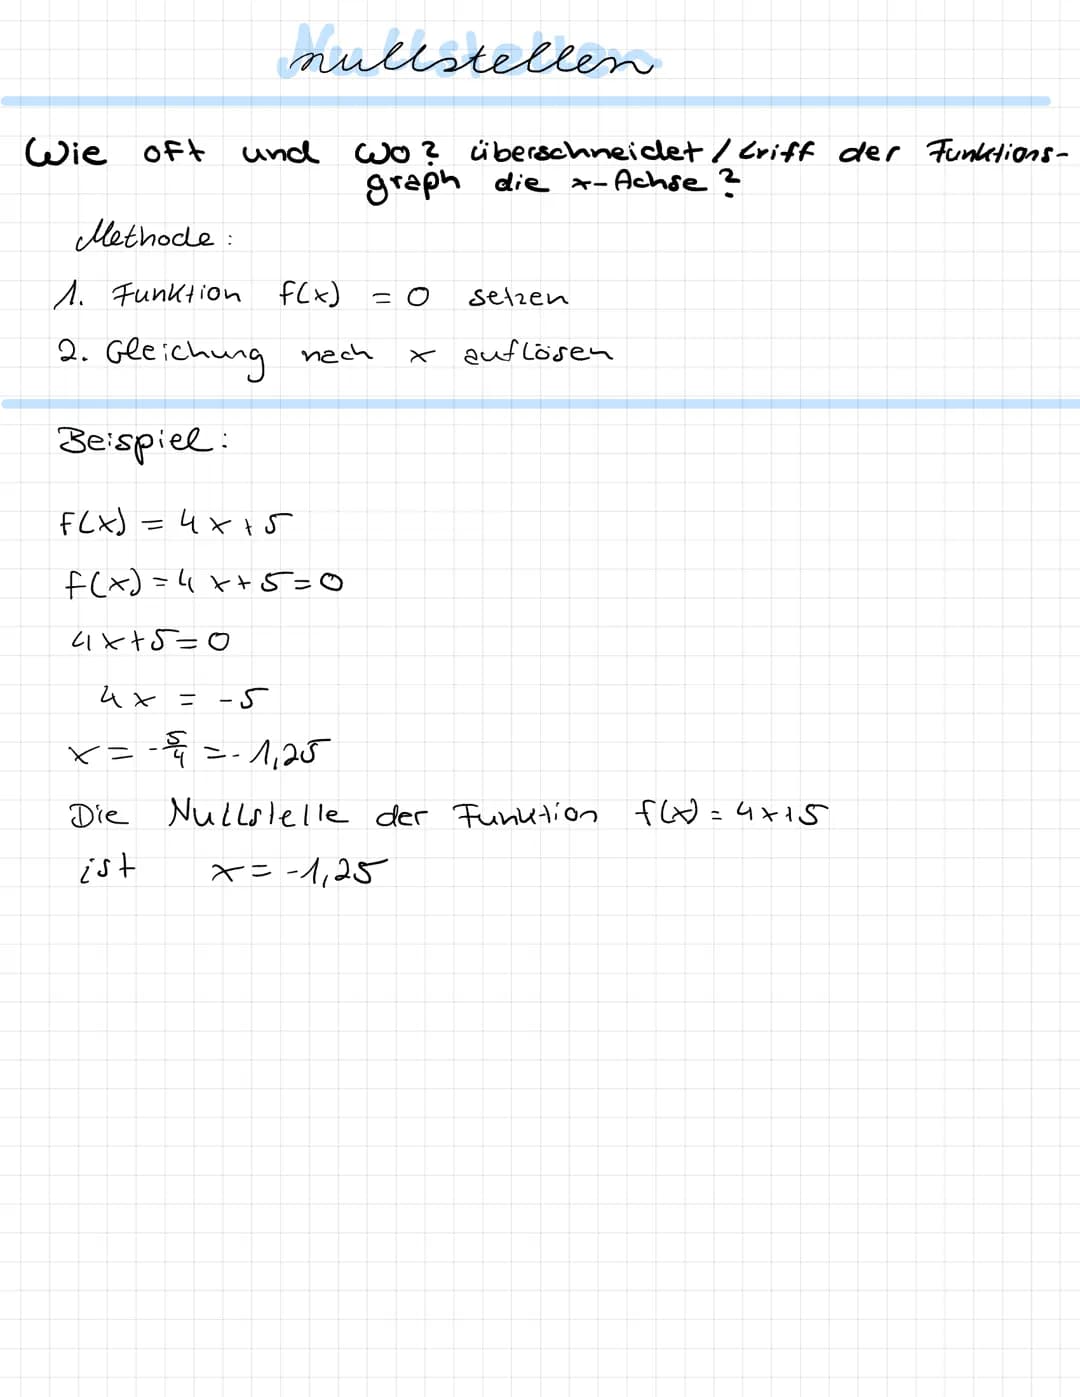 Nullstellen
Wie oft und wo? überschneidet / triff der Funktions-
graph die x-Achse?
Methode:
1. Funktion f(x) = 0 setzen
2. Gleichung nach x auflösen
Beispiel:
f(x) = 4x+5
f(x) = 4x+5=0
4x+5=0
4x = -5
x = -5/4 = -1,25
Die Nullstelle der Funktion f(x) = 4x+5
ist x = -1,25